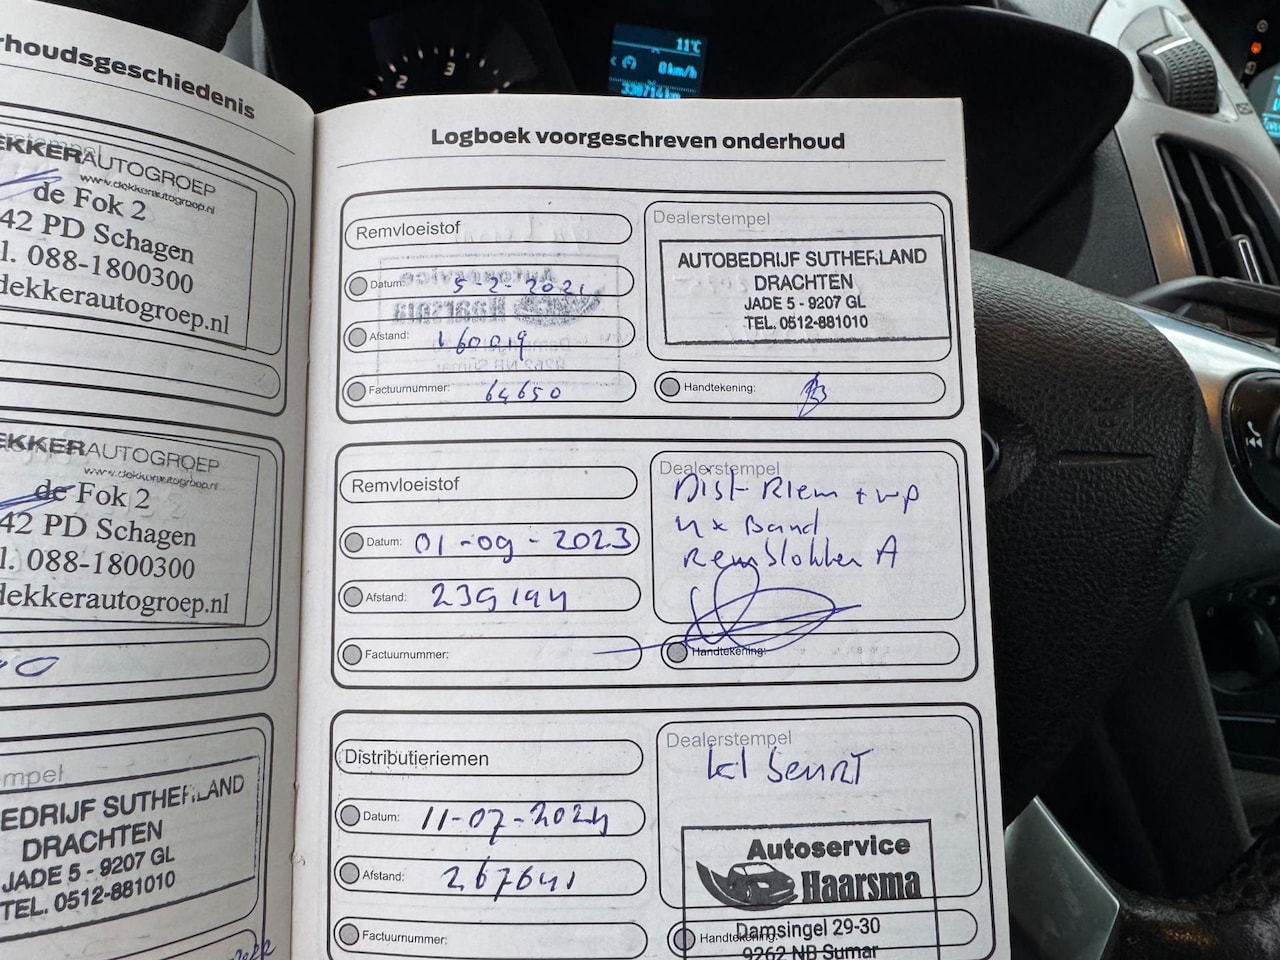 11°C
0 km/h
338714 km
2 3
rhoudsgeschiedenis
EKKERAUTOGROEP
www.dekkerautogroep.nl
de Fok 2
42 PD Schagen
l. 088-1800300
dekkerautogroep.nl
EKKERAUTOGROEP
www.dekkerautogroep.nl
de Fok 2
42 PD Schagen
l. 088-1800300
dekkerautogroep.nl
mpel
EDRIJF SUTHERLAND
DRACHTEN
JADE 5 - 9207 GL
TEL. 0512-881010
Logboek voorgeschreven onderhoud
Remvloeistof
Datum: 5-2-2021
Afstand: 160019
Factuurnummer: 64650
Dealerstempel
AUTOBEDRIJF SUTHERLAND
DRACHTEN
JADE 5 - 9207 GL
TEL. 0512-881010
Handtekening:
Remvloeistof
Datum: 01-09-2023
Afstand: 239194
Factuurnummer:
Dealerstempel
Dist-Riem + wp
4x Band
Remblokken A
Handtekening:
Distributieriemen
Datum: 11-07-2024
Afstand: 267641
Factuurnummer:
Dealerstempel
kl beurt
Autoservice
Haarsma
Damsingel 29-30
9262 NB Sumar
Handtekening: